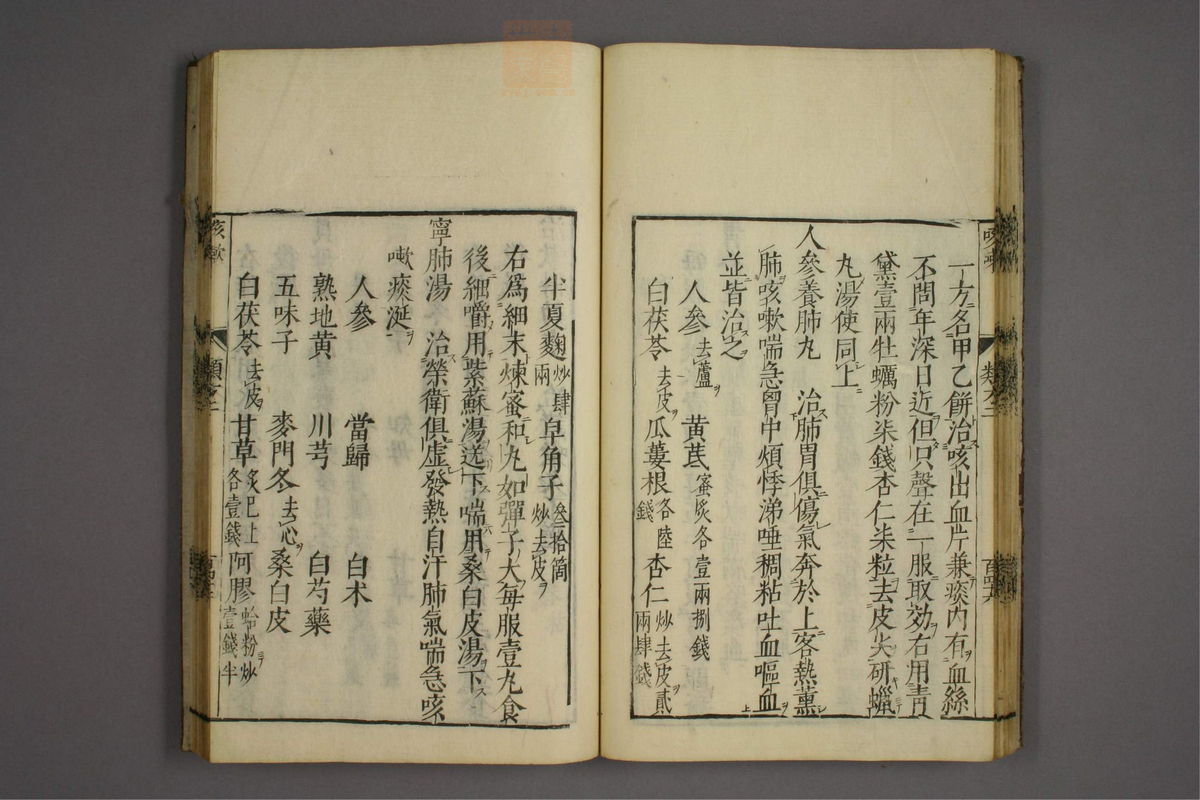 一方名甲乙餅治咳出血片兼痰内有血絲
不問年深日近但只聲在一服取効右用青
黛壹兩牡蠣粉柒錢杏仁柒粒去皮尖研蠟
丸湯使同上
人參養肺丸 治肺胃俱傷氣奔於上客熱薰
肺咳嗽喘急胷中煩悸涕唾稠粘吐血嘔血
並皆治之
人參去蘆 黃芪蜜炙各壹兩捌錢
白茯苓去皮 瓜蔞根各陸錢 杏仁炒去皮貳兩肆錢
半夏麴炒肆兩 皁角子叁拾箇炒去皮
右爲細末煉蜜和丸如彈子大每服壹丸食
後細嚼用紫蘇湯送下喘用桑白皮湯下
寧肺湯 治榮衛俱虛發熱自汗肺氣喘急咳
嗽痰涎
人參 當歸 白术
熟地黃 川芎 白芍藥
五味子 麥門冬去心 桑白皮
白茯苓去皮 甘草炙已上各壹錢 阿膠蛤粉炒壹錢半
咳嗽